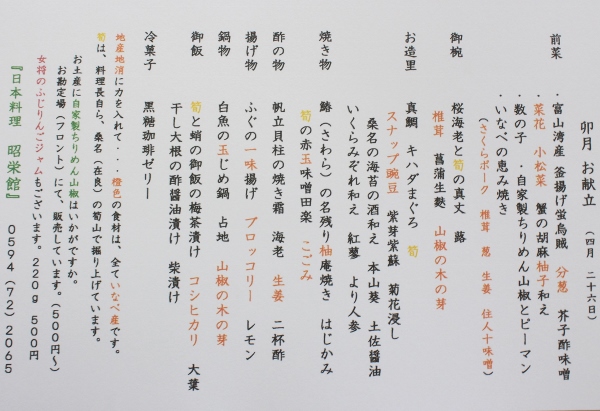 卯月 お献立 (四月 二十六日)
前菜 ・富山湾産 釜揚げ蛍烏賊 分葱 芥子酢味噌
・菜花 小松菜 蟹の胡麻柚子和え
・数の子 ・自家製ちりめん山椒とピーマン
・いなべの恵み焼き
(さくらポーク 椎茸 葱 生姜 住人十味噌)
御椀 桜海老と筍の真丈 蕗
椎茸 菖蒲生麩 山椒の木の芽
お造里 真鯛 キハダまぐろ 筍
スナップ豌豆 紫芽紫蘇 菊花浸し
桑名の海苔の酒和え 本山葵 土佐醤油
いくらみぞれ和え 紅蓼 より人参
焼き物 鰆(さわら)の名残り柚庵焼き はじかみ
筍の赤玉味噌田楽 こごみ
酢の物 帆立貝柱の焼き霜 海老 生姜 二杯酢
揚げ物 ふぐの一味揚げ ブロッコリー レモン
鍋物 白魚の玉じめ鍋 占地 山椒の木の芽
御飯 筍と蛸の御飯の梅茶漬け コシヒカリ 大葉
干し大根の酢醤油漬け 柴漬け
冷菓子 黒糖珈琲ゼリー
地産地消に力を入れて・・・橙色の食材は、全ていなべ産です。
筍は、料理長自ら、桑名(在良)の筍山で掘り上げています。
お土産に自家製ちりめん山椒はいかがですか。
お勘定場(フロント)にて、販売しています。(500円~)
女将のふじりんごジャムもございます。220g 500円
『日本料理 昭栄館』 0594(72)2065